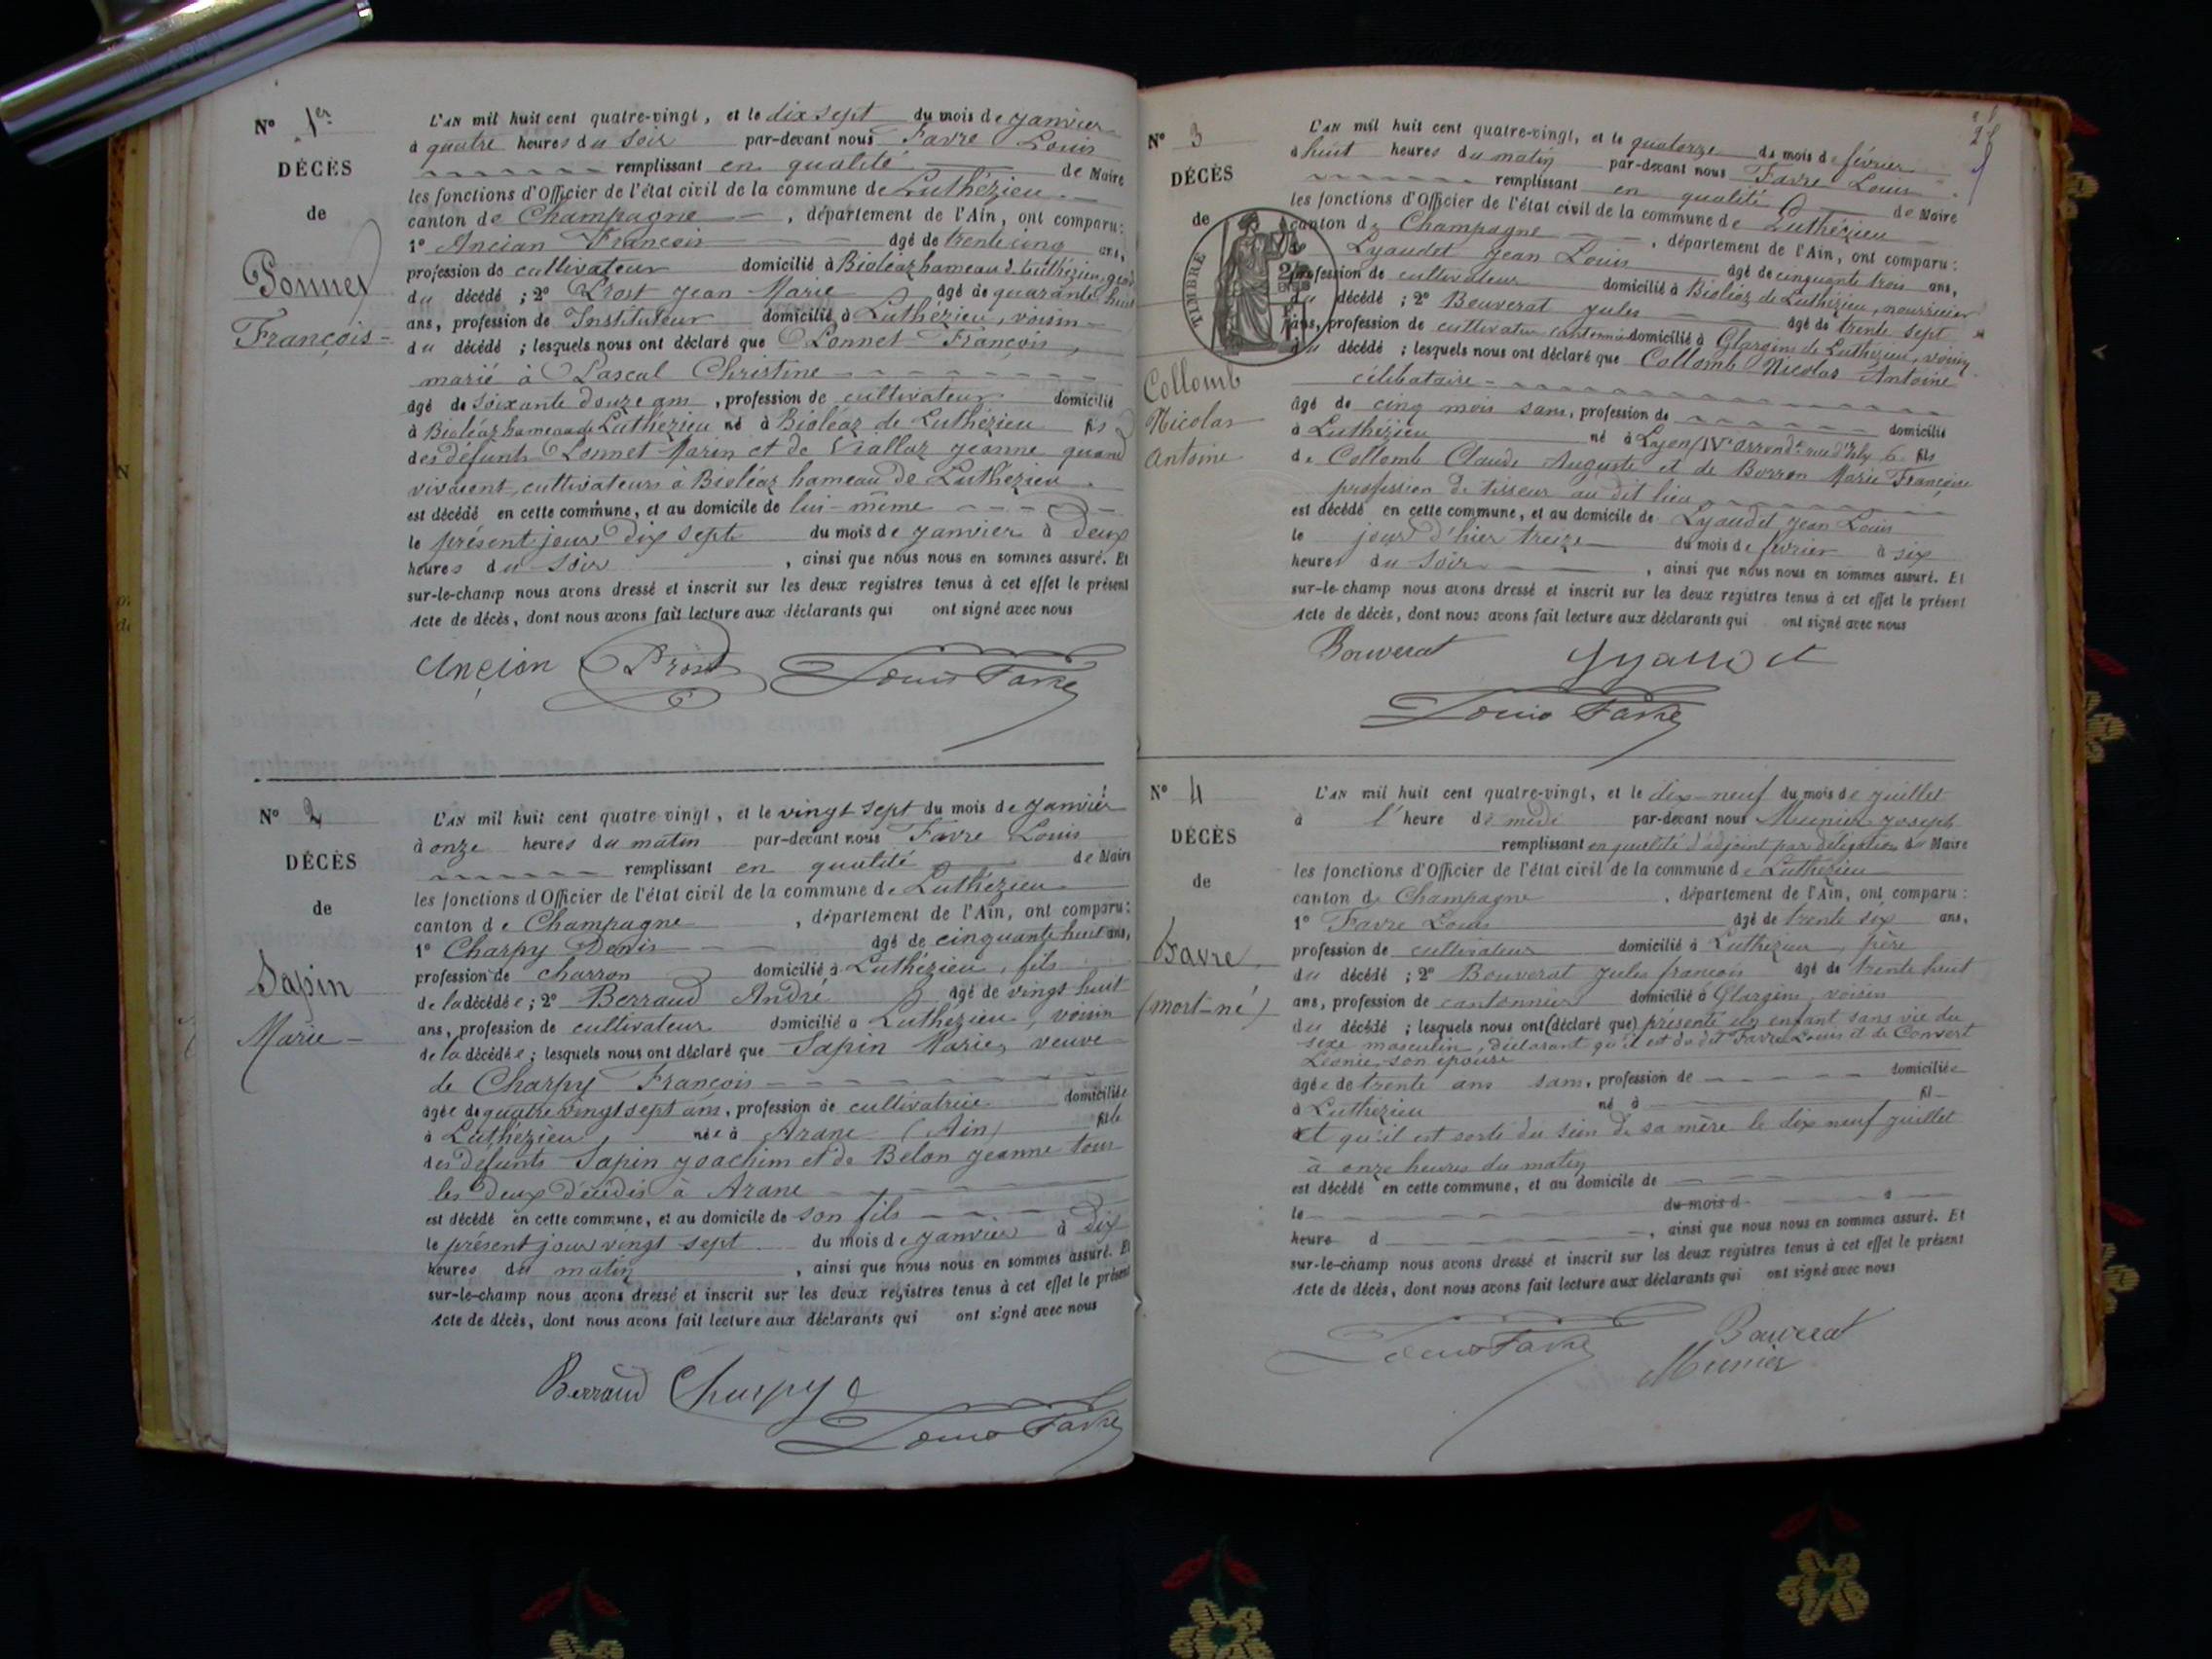 N° 1er
DÉCÈS
de
Ponnet
François
L'AN mil huit cent quatre-vingt, et le dix sept du mois de janvier
à quatre heures du soir par-devant nous Favre Louis
remplissant en qualité de Maire
les fonctions d'Officier de l'état civil de la commune de Luthézieu
canton de Champagne, département de l'Ain, ont comparu:
1° Ancian François âgé de trente cinq ans,
profession de cultivateur domicilié à Bioléaz hameau de Luthézieu, gendre
du décédé ; 2° Prost Jean Marie âgé de quarante huit
ans, profession de Instituteur domicilié à Luthézieu, voisin
du décédé ; lesquels nous ont déclaré que Ponnet François,
marié à Pascal Christine
âgé de soixante douze ans, profession de cultivateur domicilié
à Bioléaz hameau de Luthézieu né à Bioléaz de Luthézieu fils
des défunts Ponnet Marin et de Viallaz Jeanne quand
vivaient, cultivateurs à Bioléaz hameau de Luthézieu
est décédé en cette commune, et au domicile de lui-même
le présent jour dix sept du mois de janvier à deux
heures du soir, ainsi que nous nous en sommes assuré. Et
sur-le-champ nous avons dressé et inscrit sur les deux registres tenus à cet effet le présent
Acte de décès, dont nous avons fait lecture aux déclarants qui ont signé avec nous
Ancian Prost Louis Favre
N° 2
DÉCÈS
de
Sapin
Marie
L'AN mil huit cent quatre-vingt, et le vingt sept du mois de janvier
à onze heures du matin par-devant nous Favre Louis
remplissant en qualité de Maire
les fonctions d'Officier de l'état civil de la commune de Luthézieu
canton de Champagne, département de l'Ain, ont comparu:
1° Charpy Denis âgé de cinquante huit ans,
profession de charron domicilié à Luthézieu, fils
de la décédée ; 2° Berraud André âgé de vingt huit
ans, profession de cultivateur domicilié à Luthézieu, voisin
de la décédée ; lesquels nous ont déclaré que Sapin Marie, veuve
de Charpy François
âgée de quatre vingt sept ans, profession de cultivatrice domiciliée
à Luthézieu, née à Arane (Ain) fille
des défunts Sapin Joachim et de Belon Jeanne tous
les deux décédés à Arane
est décédé en cette commune, et au domicile de son fils
le présent jour vingt sept du mois de janvier à dix
heures du matin, ainsi que nous nous en sommes assuré. Et
sur-le-champ nous avons dressé et inscrit sur les deux registres tenus à cet effet le présent
Acte de décès, dont nous avons fait lecture aux déclarants qui ont signé avec nous
Berraud Charpy
Louis Favre
N° 3
DÉCÈS
de
TIMBRE
Collomb
Nicolas
Antoine
L'AN mil huit cent quatre-vingt, et le quatorze du mois de février
à huit heures du matin par-devant nous Favre Louis
remplissant en qualité de Maire
les fonctions d'Officier de l'état civil de la commune de Luthézieu
canton de Champagne, département de l'Ain, ont comparu:
Lyaudet Jean Louis âgé de cinquante trois ans,
profession de cultivateur domicilié à Bioléaz de Luthézieu, nourricier
du décédé ; 2° Bouverat Jules âgé de trente sept
ans, profession de cultivateur cantonnier domicilié à Glargins de Luthézieu, voisin
du décédé ; lesquels nous ont déclaré que Collomb Nicolas Antoine
célibataire
âgé de cinq mois sans, profession de domicilié
à Luthézieu né à Lyon (IVe arrondt rue d'Isly 6 fils
de Collomb Claude Auguste et de Borron Marie Françoise
profession de tisseur au dit lieu
est décédé en cette commune, et au domicile de Lyaudet Jean Louis
le jour d'hier treize du mois de février à six
heures du soir, ainsi que nous nous en sommes assuré. Et
sur-le-champ nous avons dressé et inscrit sur les deux registres tenus à cet effet le présent
Acte de décès, dont nous avons fait lecture aux déclarants qui ont signé avec nous
Bouverat
Louis Favre
N° 4
DÉCÈS
de
Favre
(mort-né)
L'AN mil huit cent quatre-vingt, et le dix-neuf du mois de juillet
à l'heure de midi par-devant nous Munier Joseph
remplissant en qualité d'adjoint par délégation du Maire
les fonctions d'Officier de l'état civil de la commune de Luthézieu
canton de Champagne, département de l'Ain, ont comparu:
1° Favre Louis âgé de trente six ans,
profession de cultivateur domicilié à Luthézieu, père
du décédé ; 2° Bouverat Jules françois âgé de trente huit
ans, profession de cantonnier domicilié à Glargins, voisin
du décédé ; lesquels nous ont (déclaré que) présenté un enfant sans vie du
sexe masculin, déclarant qu'il est du dit Favre Louis et de Convert
Léonie, son épouse
âgée de trente ans sans, profession de domiciliée
à Luthézieu né à fil
et qu'il est sorti du sein de sa mère le dix neuf juillet
à onze heures du matin
est décédé en cette commune, et au domicile de
le du mois d à
heure d, ainsi que nous nous en sommes assuré. Et
sur-le-champ nous avons dressé et inscrit sur les deux registres tenus à cet effet le présent
Acte de décès, dont nous avons fait lecture aux déclarants qui ont signé avec nous
Louis Favre Bouverat
Munier